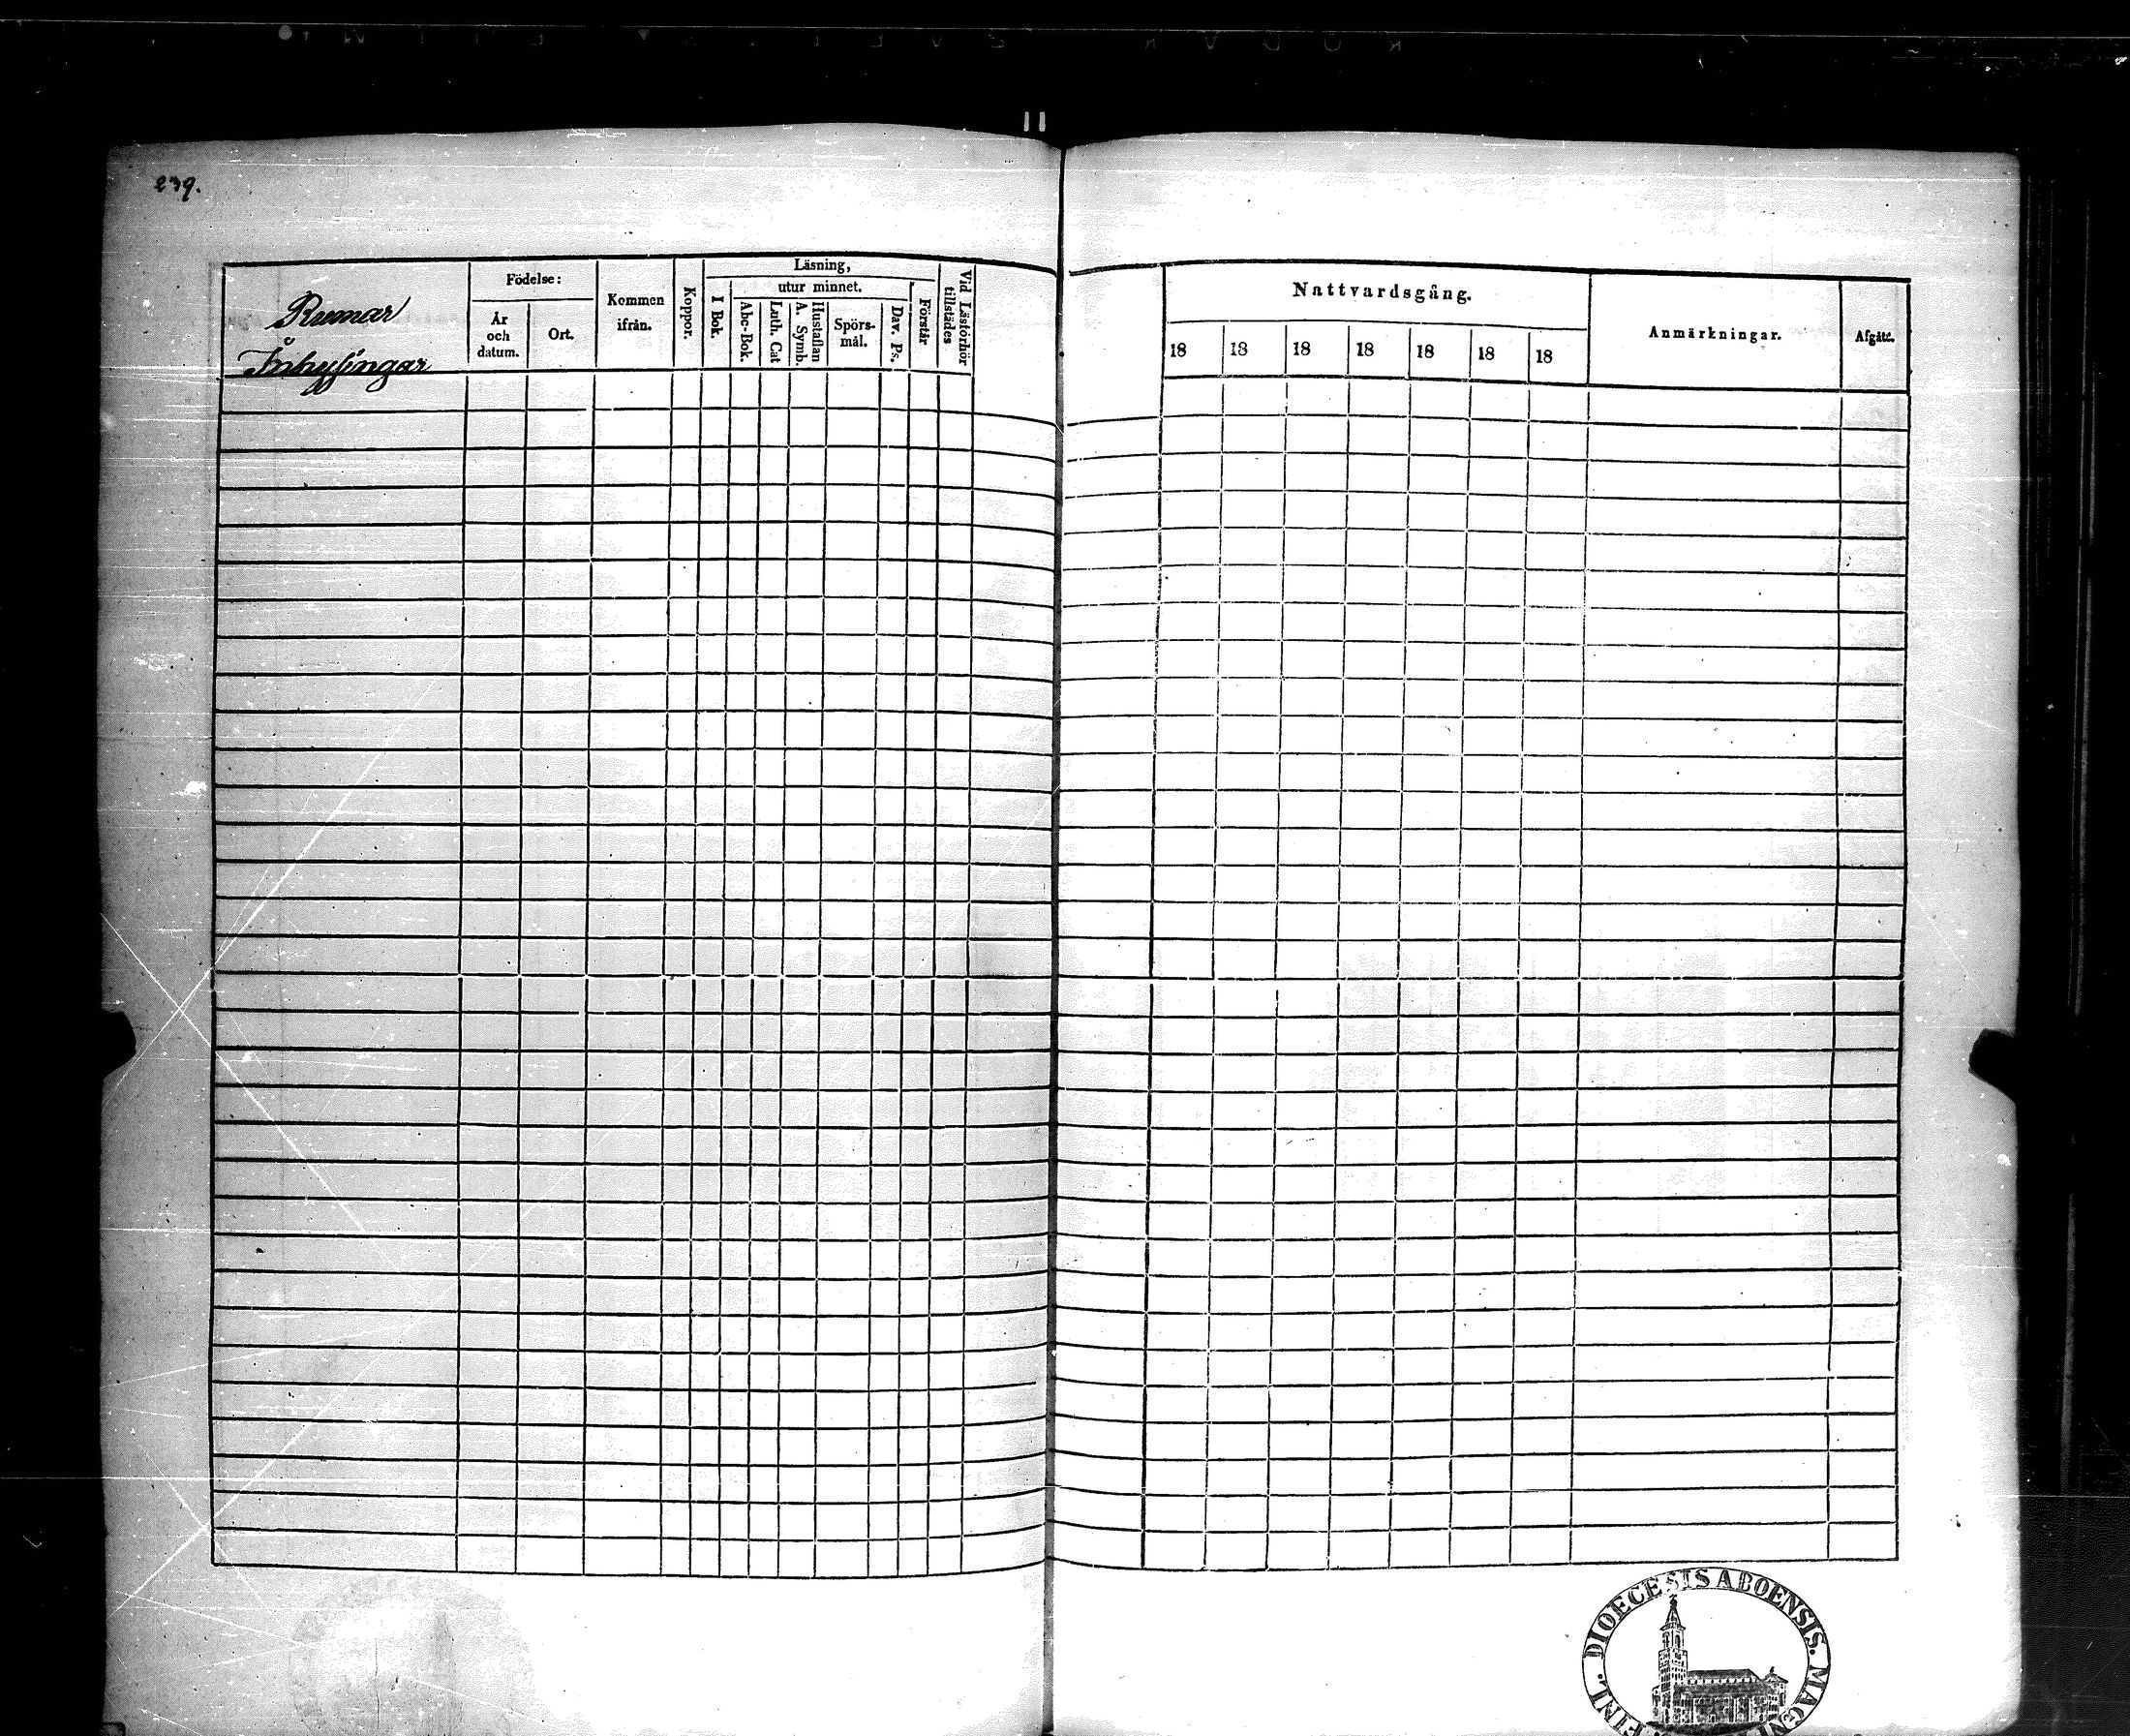 239.
Rumar
Inhysingar
Födelse:
År
och
datum.
Ort.
Kommen
ifrån.
Koppor.
Läsning,
I Bok.
utur minnet.
Abc-Bok.
Luth. Cat
Hustaflan
A. Symb.
Spörs-
mål.
Dav. Ps.
Förstår
Vid Läsförhör
tillstädes
Nattvardsgång.
18 18 18 18 18 18 18
Anmärkningar.
Afgått.
FINL. DIOECESIS ABOENSIS. MAGNI